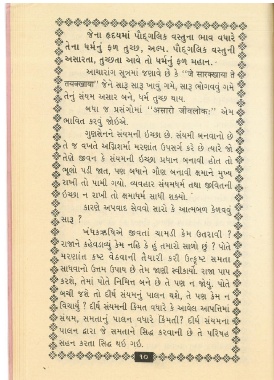 જેના હૃદયમાં પૌદ્‌ગલિક વસ્તુના ભાવ વધારે
તેના ધર્મનું ફળ તુચ્છ, અલ્પ. પૌદ્‌ગલિક વસ્તુની
અસારતા, તુચ્છતા આવે તો ધર્મનું ફળ મહાન.
આચારાંગ સૂત્રમાં જણાવે છે કે "जे
જેને સારૂ સારૂ ખાવુ ગમે, સારૂ ભોગવવું ગમે
તેનું સંયમ અસાર બને, ધર્મ તુચ્છ થાય.
બધા જ પ્રસંગોમાં "असारो जीवलोकः" એમ
ભાવિત કરવું જોઈએ.
ગુણસેનને સંયમની ઇચ્છા છે. સંયમી બનવાનો છે
તે જ વખતે અગ્નિશર્મા મરણાંત ઉપસર્ગ કરે છે ત્યારે જો
તેણે જીવન કે સંયમની ઈચ્છા પ્રધાન બનાવી હોત તો
ભૂલો પડી જાત, પણ બધાને ગૌણ બનાવી ક્ષમાને મુખ્ય
રાખી તો પામી ગયો. વ્યવહાર સંયમધર્મ તથા જીવિતની
ઇચ્છા ન રાખી તો ક્ષમાધર્મ સાધી શક્યો.
કારણે અપવાદ સેવવો સારો કે આત્મબળ કેળવવું
સારૂ ?
બંધકઋષિએ જીવતાં ચામડી કેમ ઉતરાવી ?
રાજાને કહેવડાવ્યું કેમ નહિ કે હું તમારો સાળો છું ? પોતે
મરણાંત કષ્ટ વેઠવાની તૈયારી કરી ઉત્કૃષ્ટ સમતા
સાધવાનો ઉત્તમ ઉપાય છે તેમ જાણી સ્વીકાર્યો. રાજા પાપ
કરશે, તેમાં પોતે નિમિત્ત બને છે તે પણ ન જોયું. પોતે
બચી જશે તો દીર્ઘ સંયમનું પાલન થશે, તે પણ કેમ ન
વિચાર્યું ? દીર્ઘ સંયમની કિંમત વધારે કે આવેલ આપત્તિમાં
સંયમ, સમતાનું પાલન વધારે કિંમતી? દીર્ઘ સંયમના
પાલન દ્વારા જે સમતાને સિદ્ધ કરવાની છે તે પરિષહ
સહન કરતા સિદ્ધ થઇ ગઇ.
૧૦